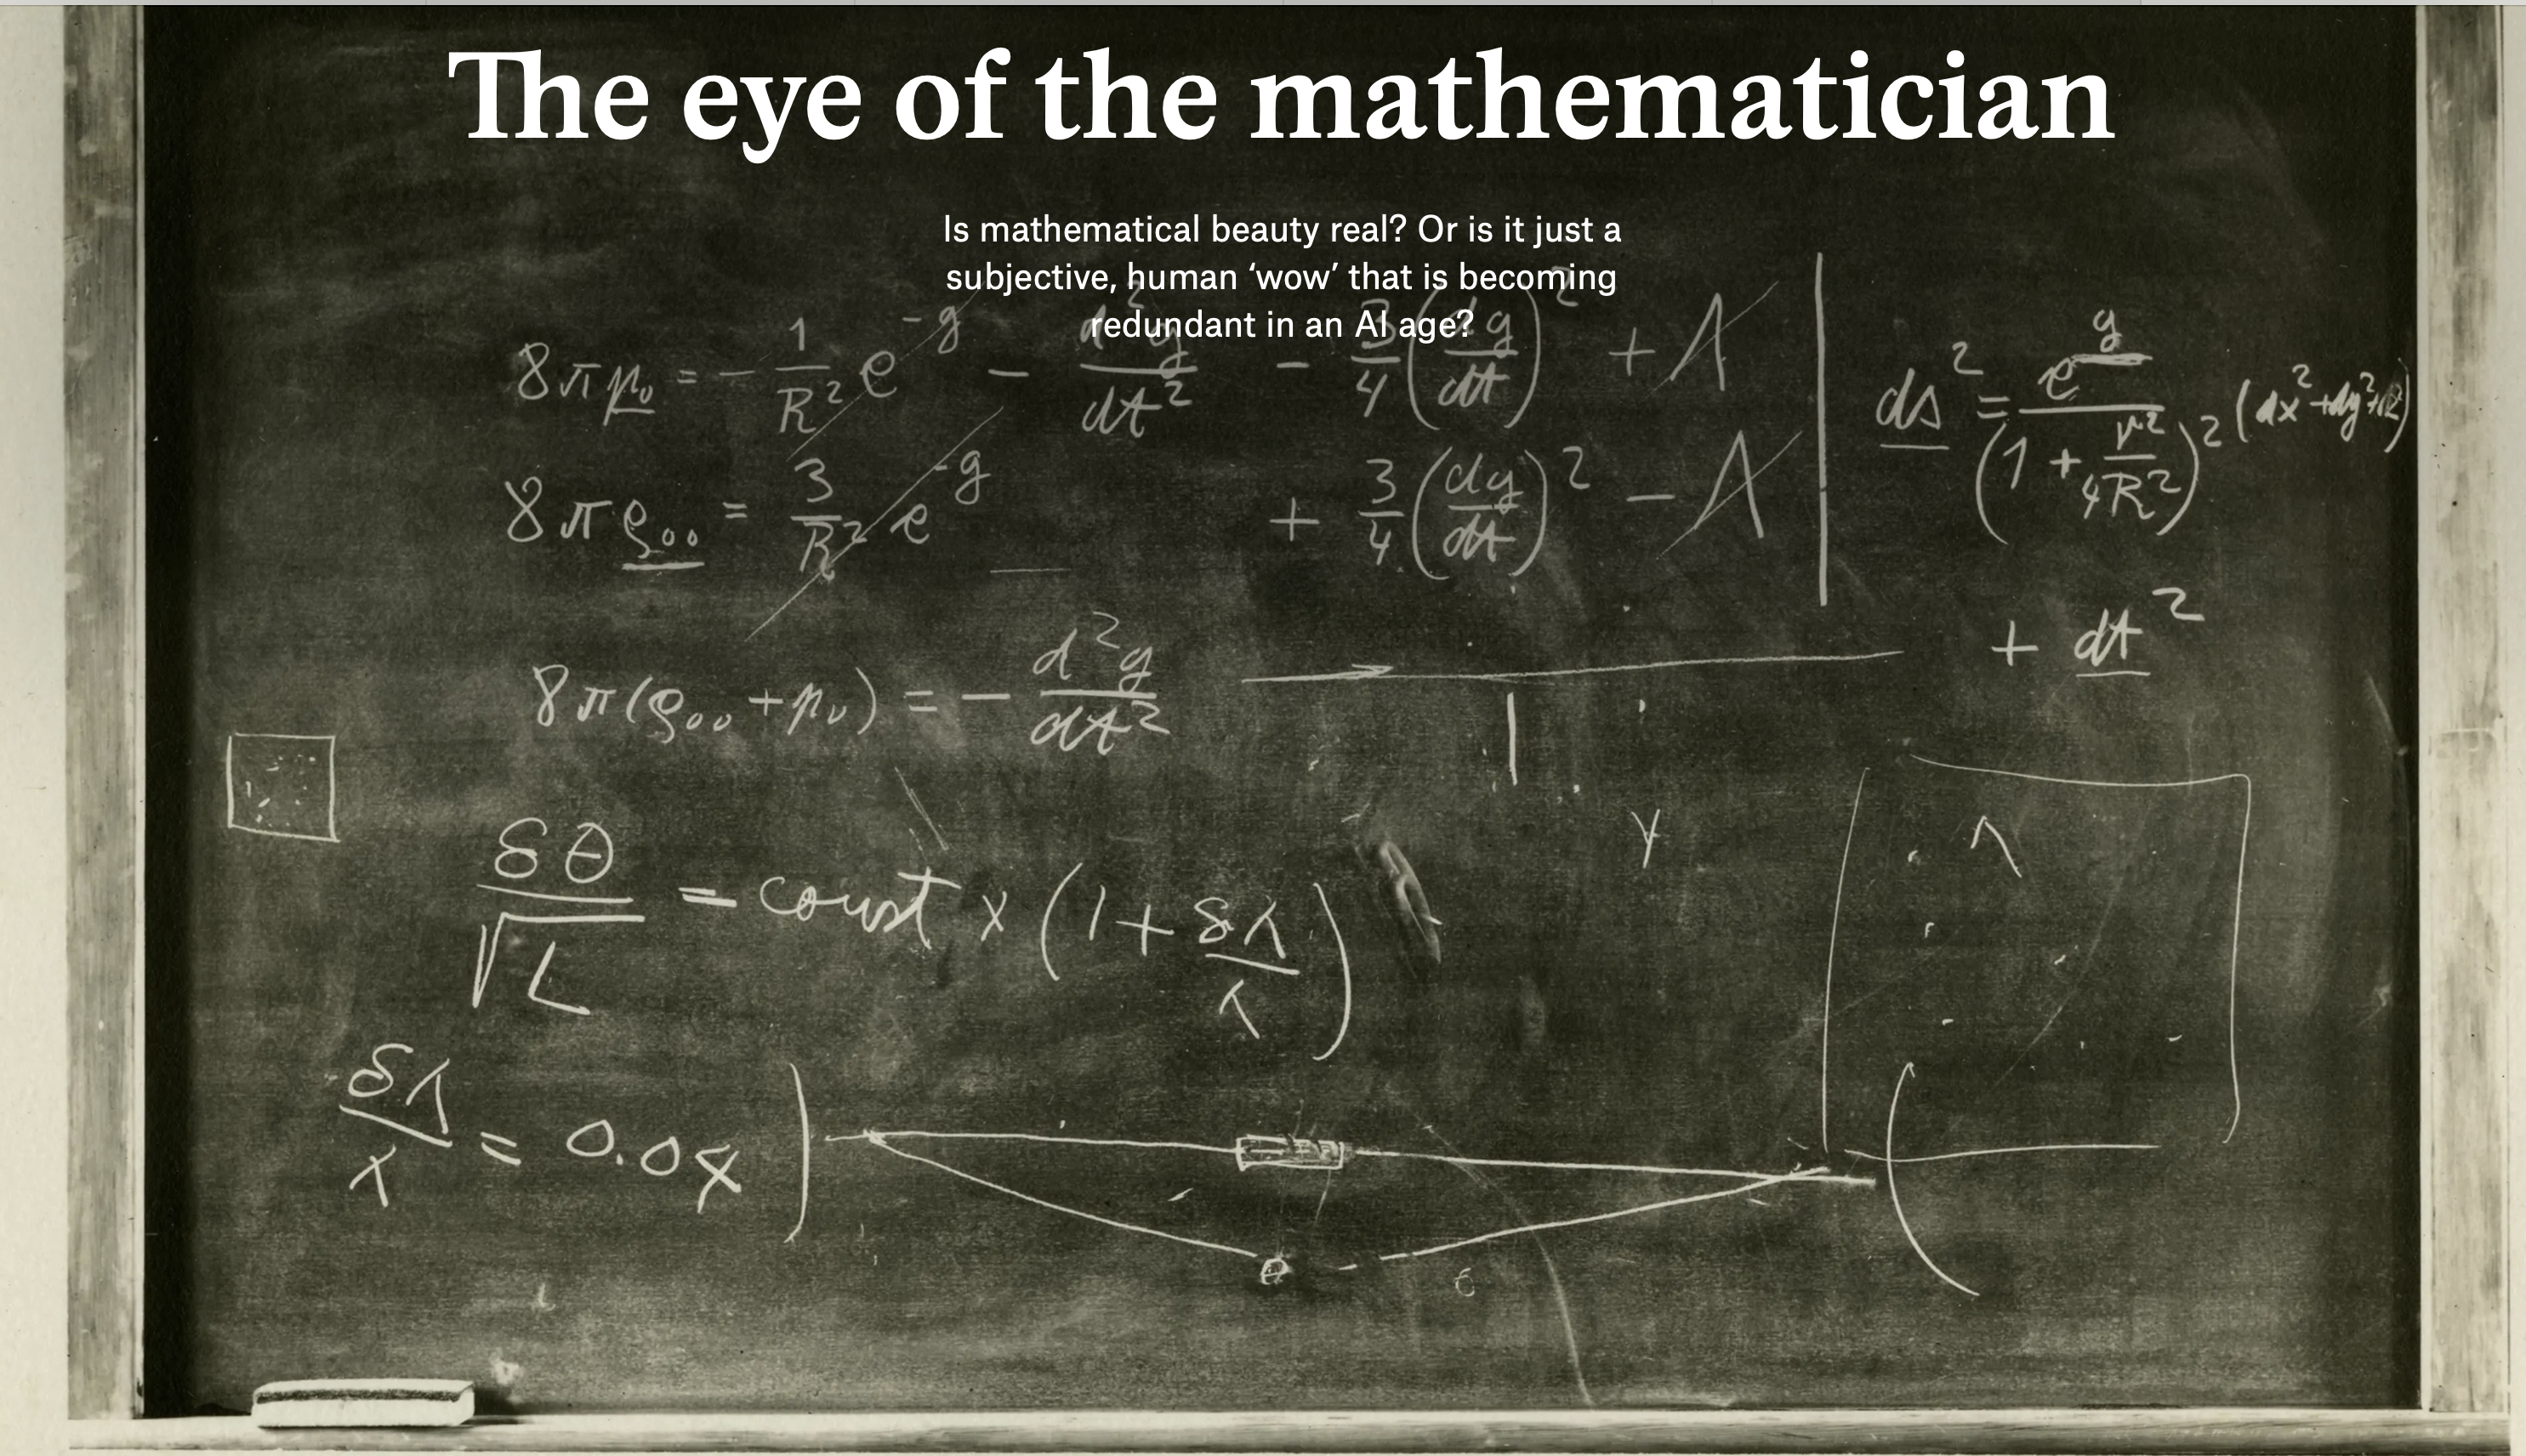 The eye of the mathematician
Is mathematical beauty real? Or is it just a
subjective, human ‘wow’ that is becoming
redundant in an AI age?
8πp₀ = - 1/R² e^-g - d²g/dt² - 3/4 (dg/dt)² + Λ
ds² = e^g/(1 + r²/4R²)²
8πρ₀₀ = 3/R² e^-g + 3/4 (dg/dt)² - Λ
+ dt²
8π(ρ₀₀ + p₀) = - d²g/dt²
δθ/√L = const x (1 + δλ/λ)